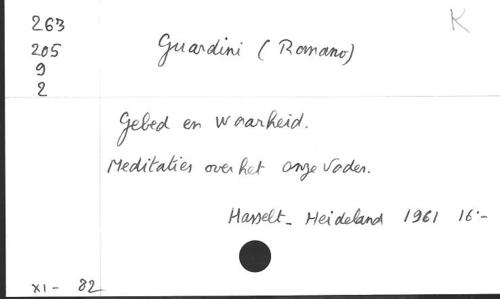 263
K
205
Guardini (Romano)
9
2
Gebed en Waarheid.
Meditaties over het onze Vader.
Hasselt - Heideland 1961 16:-
XI - 82